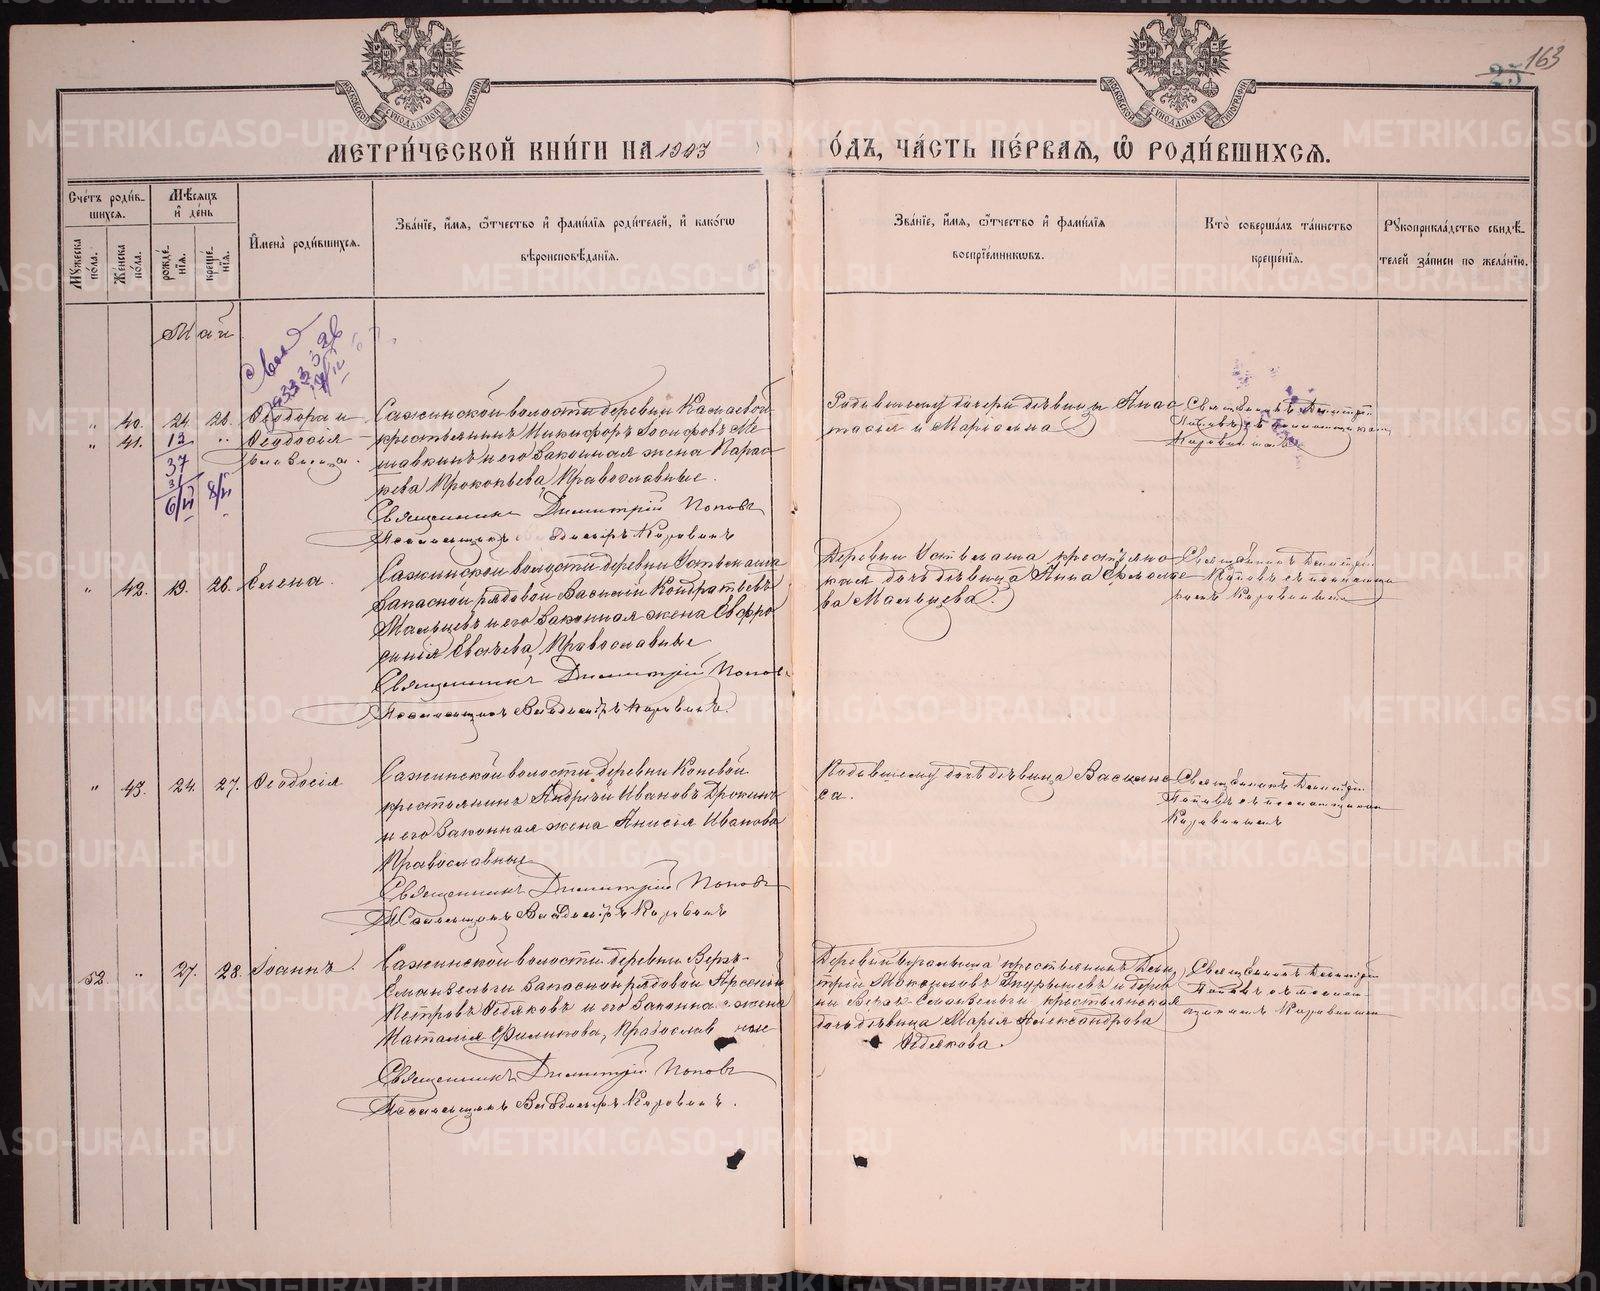 163
25
МЕТРИ́ЧЕСКОЙ КНИ́ГИ НА 1903
ГО́ДЪ, ЧА́СТЬ ПЕ́РВАЯ, Ѡ РОДИ́ВШИХСЯ.
Сче́тъ роди́в-
шихся.
Мꙋжеска
по́ла.
Же́нска
по́ла.
Мѣ́сяцъ
и҆ де́нь
рожде́-
нїя.
креще́-
нїя.
И҆мена̀ роди́вшихся.
Зва́нїе, и҆́мя, ѻ҆́тчество и҆ фами́лїя роди́телей, и҆ како́гѡ
вѣроисповѣ́данїя.
Зва́нїе, и҆́мя, ѻ҆́тчество и҆ фами́лїя
воспрїе́мниковъ.
Кто̀ соверша́лъ та́инство
креще́нїя.
Рꙋкоприкла́дство свидѣ́-
телей за́писи по жела́нїю.
Май
„ 40. 24. 26. Ѳеодора и
„ 41. 13 „ Ѳеодосія
близнецы.
37
31
6/VI 8/VI
Сажинской волости деревни
крестьянинъ Никифоръ Іосифовъ Ме-
шавкинъ и его законная жена Парас-
кева Прокопьева, Православные.
Священникъ Димитрій Поповъ
Псаломщикъ Владиміръ Коровинъ
дочери дѣвицы Анас-
тасія и Маріамна
Священникъ Димитрій
Поповъ съ псаломщикомъ
Коровинымъ
„ 42. 19. 26. Елена.
Сажинской волости деревни Устьмаша
запасной рядовой Василій Кондратьевъ
Мальцевъ и его законная жена Евфро-
синія Евсѣева, Православные
Священникъ Димитрій Поповъ
Псаломщикъ Владиміръ Коровинъ.
Деревни Устьмаша крестьянс-
кая дочь дѣвица Анна
ва Мальцева.
Священникъ Димитрій
Поповъ съ псаломщи-
комъ Коровинымъ
„ 43. 24. 27. Ѳеодосія
Сажинской волости деревни Коневой
крестьянинъ Андрей Ивановъ
и его законная жена Анисія Иванова
Православные
Священникъ Димитрій Поповъ
Псаломщикъ Владиміръ Коровинъ
дочь дѣвица Василис-
са.
Священникъ Димитрій
Поповъ съ псаломщикомъ
Коровинымъ
52. „ 27. 28. Іоаннъ.
Сажинской волости деревни Верхъ-
запасной рядовой Арсеній
Петровъ Ѳедяковъ и его законная жена
Наталія Филипова, Православные
Священникъ Димитрій Поповъ
Псаломщикъ Владиміръ Коровинъ.
Деревни крестьянинъ Дими-
трій Максимовъ и дерев-
ни Верхъ крестьянская
дочь дѣвица Марія Александрова
Ѳедякова.
Священникъ Димитрій
Поповъ съ псалом-
щикомъ Коровинымъ
METRIKI.GASO-URAL.RU